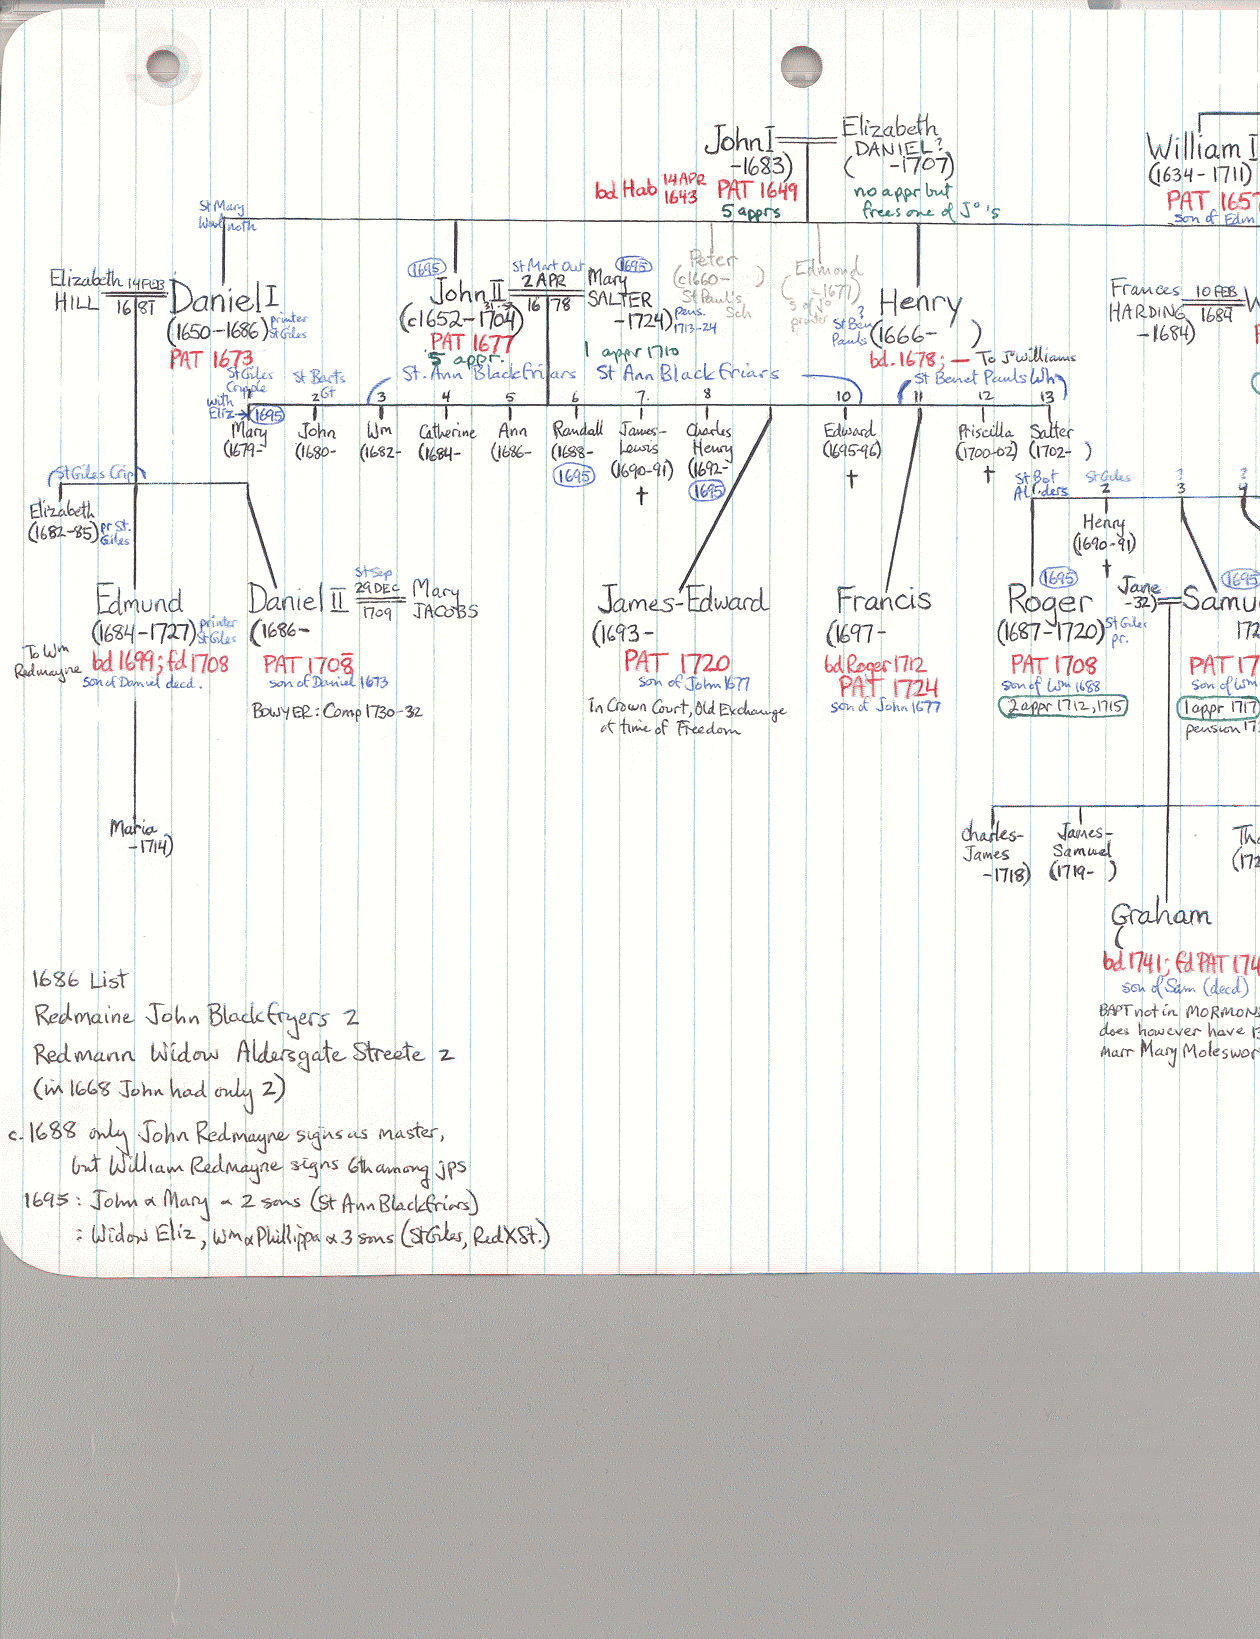 John I
-1683)
bd Hab 14 APR 1643
PAT 1649
5 apprs
Elizabeth
DANIEL?
( -1707)
no appr but
frees one of Jº's
William I
(1634-1711)
PAT 1657
son of Edm
St Mary
Woolnoth
Elizabeth
HILL
14 FEB
1681
Daniel I
(1650-1686)
printer
St Giles
PAT 1673
1695
John II
(c1652-1704)
PAT 1677
5 appr.
St Mart Out
2 APR
1678
Mary
SALTER
-1724)
1695
pens.
1713-24
1 appr 1710
Peter
(c1660- )
St Paul's
Sch
Edmond
( -1677)
s of Jº
printer
Henry
(1666- )
?
St Ben
Pauls
bd. 1678; — To Jº Williams
Frances
HARDING
-1684)
10 FEB
1684
W
St Giles
Cripple
with
Eliz→
1695
St Barts
Gt
St. Ann Blackfriars St Ann Blackfriars
St Benet Pauls Wh
2 3 4 5 6 7. 8 10 11 12 13
Mary
(1679-
John
(1680-
Wm
(1682-
Catherine
(1684-
Ann
(1686-
Randall
(1688-
1695
James-
Lewis
(1690-91)
†
Charles
Henry
(1692-
1695
Edward
(1695-96)
†
Priscilla
(1700-02)
†
Salter
(1702- )
St Giles Crip
Elizabeth
(1682-85)
pr St.
Giles
St Bot
Alders
St Giles
2
?
3
?
4
Henry
(1690-91)
†
Edmund
(1684-1727)
printer
St Giles
To Wm
Redmayne
bd 1699; fd 1708
son of Daniel decd.
Daniel II
(1686-
St Sep
29 DEC
1709
Mary
JACOBS
PAT 1708
son of Daniel 1673
BOWYER: Comp 1730-32
James-Edward
(1693-
PAT 1720
son of John 1677
In Crown Court, Old Exchange
at time of Freedom
Francis
(1697-
bd Roger 1712
PAT 1724
son of John 1677
1695
Roger
(1687-1720)
St Giles
pr.
PAT 1708
son of Wm 1688
2 appr 1712, 1715
Jane
-32)
1695
Samu
172
PAT 17
son of Wm
1 appr 1717
pension 17
Maria
-1714)
Charles-
James
-1718)
James-
Samuel
(1719- )
Tho
(172
Graham
(
bd 1741; fd PAT 174
son of Sam (decd)
BAPT not in MORMONS
does however have 13
marr Mary Moleswor
1686 List
Redmaine John Blackfryers 2
Redmann Widow Aldersgate Streete 2
(in 1668 John had only 2)
c. 1688 only John Redmayne signs as master,
but William Redmayne signs 6th among jps
1695: John & Mary & 2 sons (St Ann Blackfriars)
: Widow Eliz, Wm & Phillippa & 3 sons (St Giles, Red X St.)